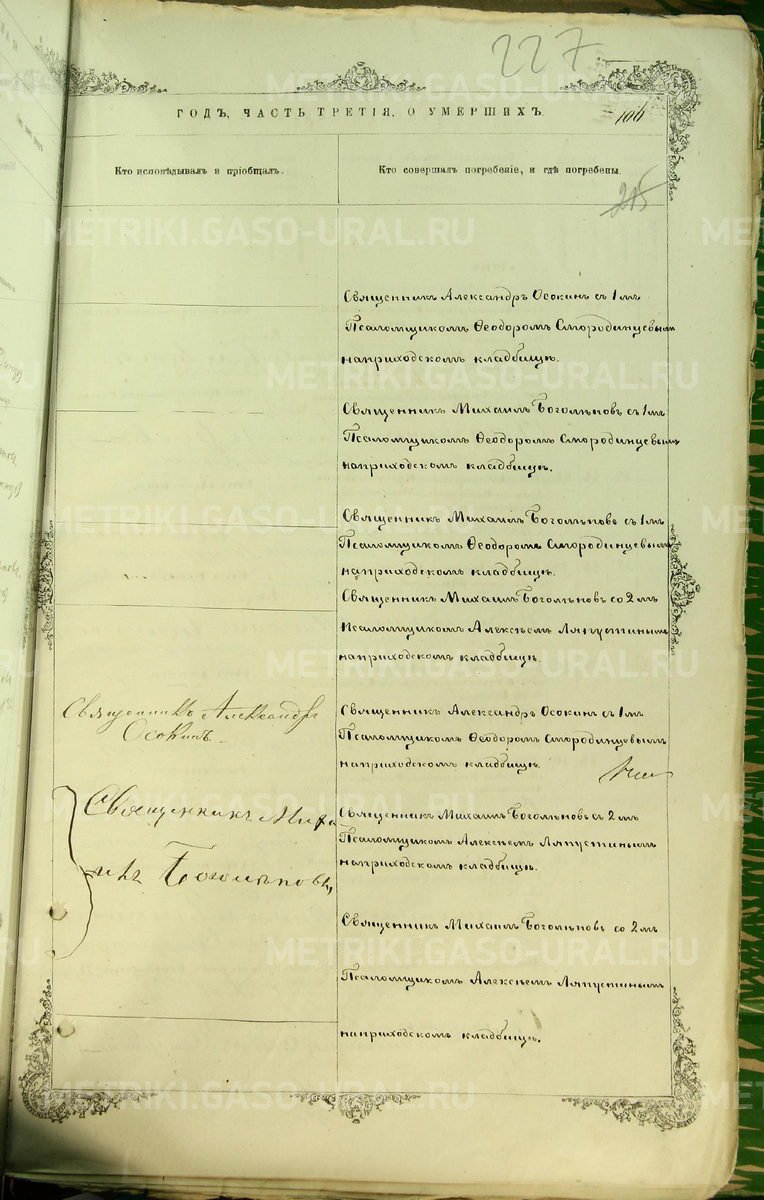 227
ГОДЪ, ЧАСТЬ ТРЕТІЯ, О УМЕРШИХЪ.
106
Кто исповѣдывалъ и пріобщалъ.
Кто совершалъ погребеніе, и гдѣ погребены.
215
METRIKI.GASO-URAL.RU
Священникъ Александръ Осокинъ съ 1мъ
Псаломщикомъ Ѳеодоромъ Смородинцевымъ
на приходскомъ кладбищѣ.
Священникъ Михаилъ Боголѣповъ съ 1мъ
Псаломщикомъ Ѳеодоромъ Смородинцевымъ
на приходскомъ кладбищѣ.
Священникъ Михаилъ Боголѣповъ съ 1мъ
Псаломщикомъ Ѳеодоромъ Смородинцевымъ
на приходскомъ кладбищѣ.
Священникъ Михаилъ Боголѣповъ со 2мъ
псаломщикомъ Алексѣемъ Ляпустинымъ
на приходскомъ кладбищѣ.
Священникъ Александръ
Осокинъ.
Священникъ Александръ Осокинъ съ 1мъ
Псаломщикомъ Ѳеодоромъ Смородинцевымъ
на приходскомъ кладбищѣ.
Священникъ Миха
илъ Боголѣповъ,
Священникъ Михаилъ Боголѣповъ съ 2мъ
Псаломщикомъ Алексѣемъ Ляпустинымъ
на приходскомъ кладбищѣ.
Священникъ Михаилъ Боголѣповъ со 2мъ
Псаломщикомъ Алексѣемъ Ляпустинымъ
на приходскомъ кладбищѣ.